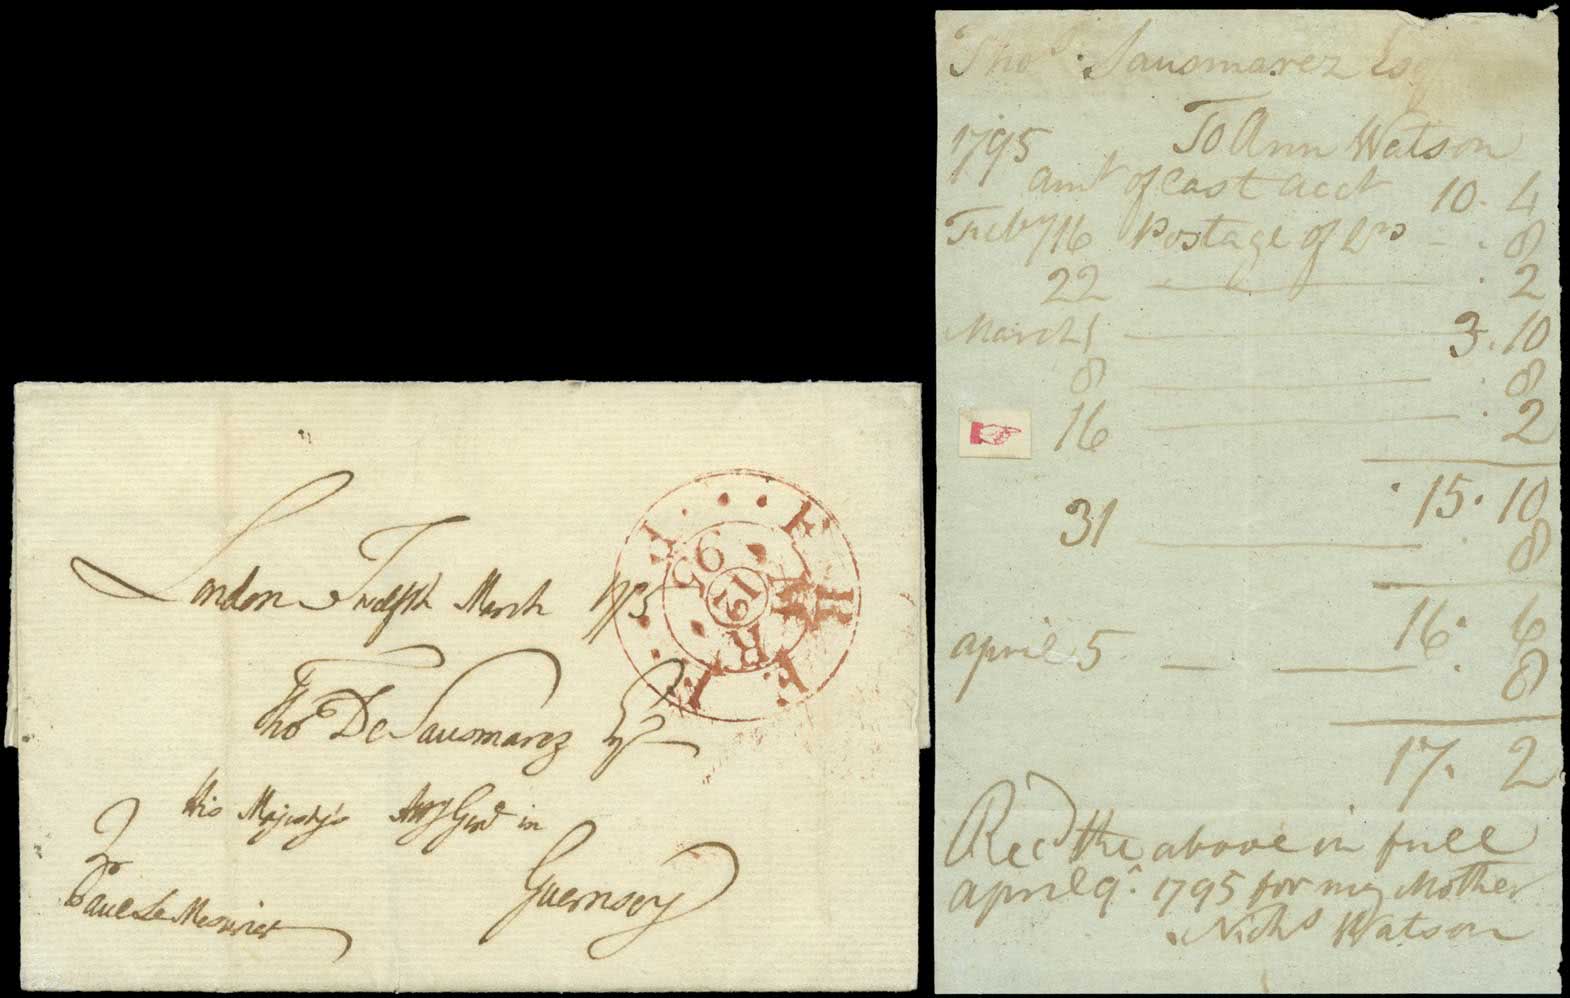 London Twelfth March 1795
Thos De Sausmarez Esqr
His Majesty's Atty Genl in
Guernsey
Paul Le Mesurier
FREE
95
12
R
Thos. Sausmarez Esq
1795 To Ann Watson
amt of Last acct 10. 4
Feby 16 Postage of Lrs - . 8
22 . 2
March 1 3. 10
8 . 8
16 . 2
15. 10
31 . 8
16. 6
april 5 . 8
17. 2
Recd the above in full
april 9. 1795 for my Mother
Nichs Watson